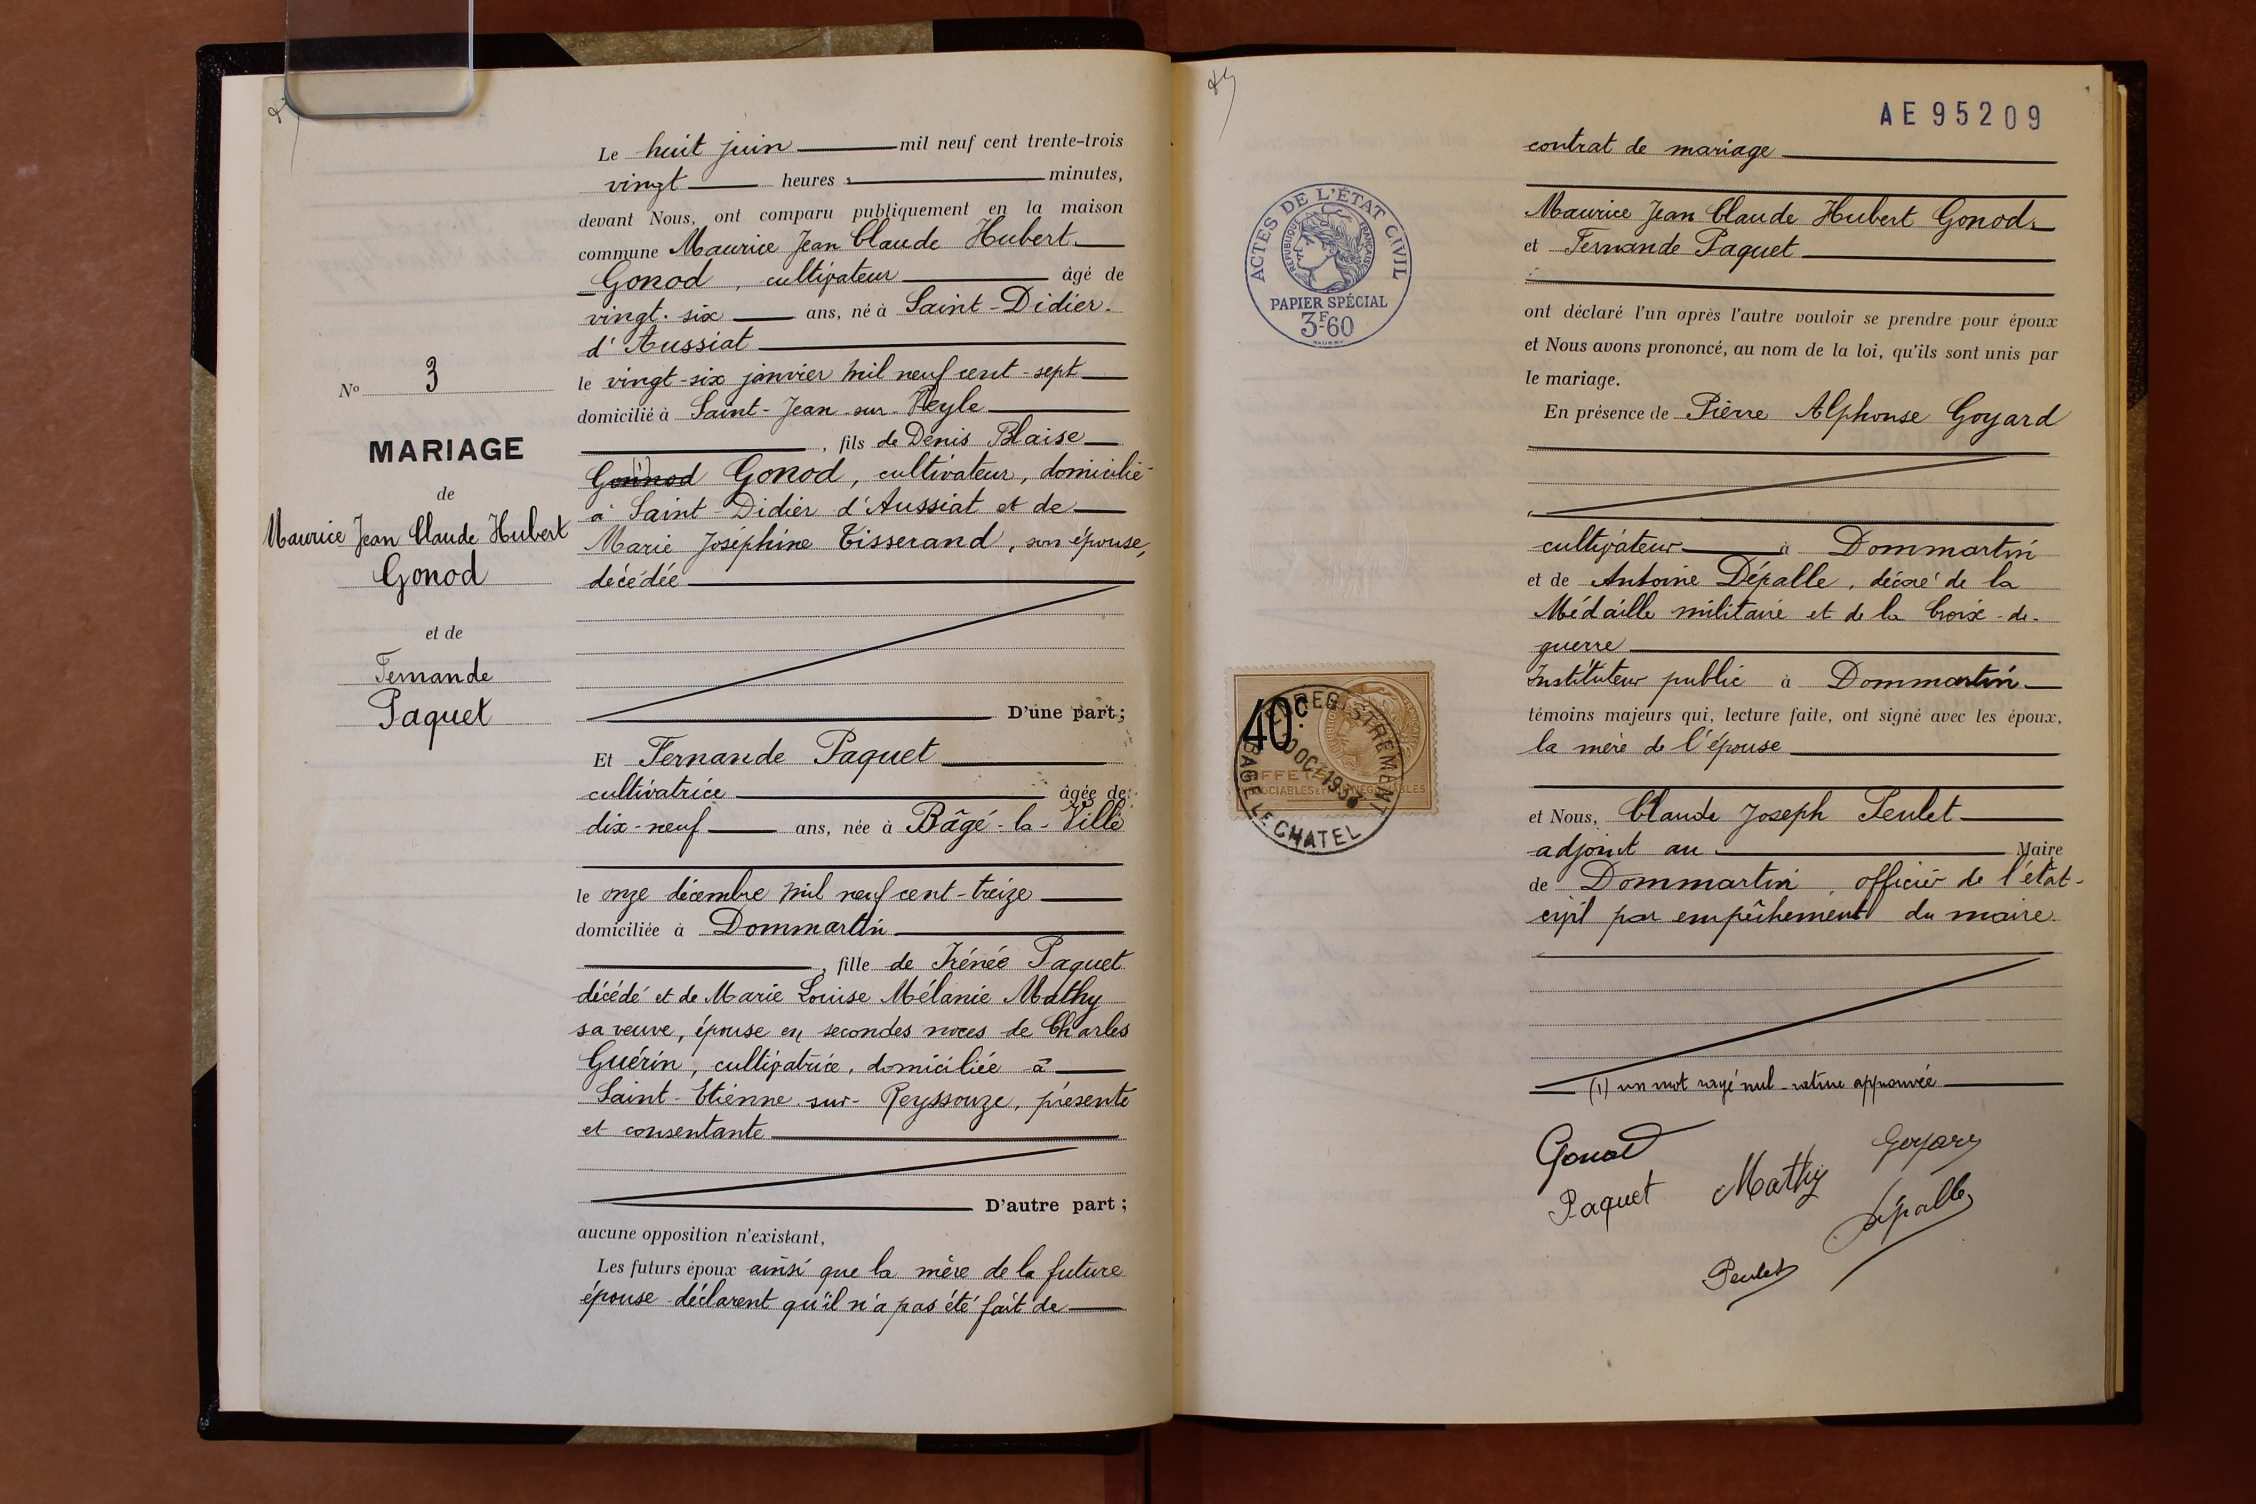 Le huit juin mil neuf cent trente-trois
vingt heures minutes,
devant Nous, ont comparu publiquement en la maison
commune Maurice Jean Claude Hubert
Gonod, cultivateur âgé de
vingt-six ans, né à Saint-Didier-
d'Aussiat
le vingt-six janvier mil neuf cent-sept
domicilié à Saint-Jean-sur-Veyle
, fils de Denis Blaise
(1)
Gonnod Gonod, cultivateur, domicilié
à Saint-Didier d'Aussiat et de
Marie Joséphine Tisserand, son épouse,
décédée
D'une part;
Et Fernande Paquet
cultivatrice âgée de
dix-neuf ans, née à Bâgé-la-Ville
le onze décembre mil neuf cent-treize
domiciliée à Dommartin
, fille de Irénée Paquet
décédé et de Marie Louise Mélanie Mathy
sa veuve, épouse en secondes noces de Charles
Guérin, cultivatrice, domiciliée à
Saint-Etienne-sur-Reyssouze, présente
et consentante
D'autre part;
aucune opposition n'existant,
Les futurs époux ainsi que la mère de la future
épouse déclarent qu'il n'a pas été fait de
No 3
MARIAGE
de
Maurice Jean Claude Hubert
Gonod
et de
Fernande
Paquet
AE95209
contrat de mariage
Maurice Jean Claude Hubert Gonod
et Fernande Paquet
ont déclaré l'un après l'autre vouloir se prendre pour époux
et Nous avons prononcé, au nom de la loi, qu'ils sont unis par
le mariage.
En présence de Pierre Alphonse Goyard
cultivateur à Dommartin
et de Antoine Dépalle, décoré de la
Médaille militaire et de la Croix-de-
guerre
Instituteur public à Dommartin
témoins majeurs qui, lecture faite, ont signé avec les époux,
la mère de l'épouse
et Nous, Claude Joseph Peulet
adjoint au Maire
de Dommartin, officier de l'état-
civil par empêchement du maire.
(1) un mot rayé nul-rature approuvée
Gonod
Goyard
Paquet Mathy
Dépalle
Peulet
ACTES DE L'ÉTAT CIVIL
RÉPUBLIQUE FRANÇAISE
PAPIER SPÉCIAL
3F-60
40
ENREGISTREMENT
BAGÉ LE CHATEL